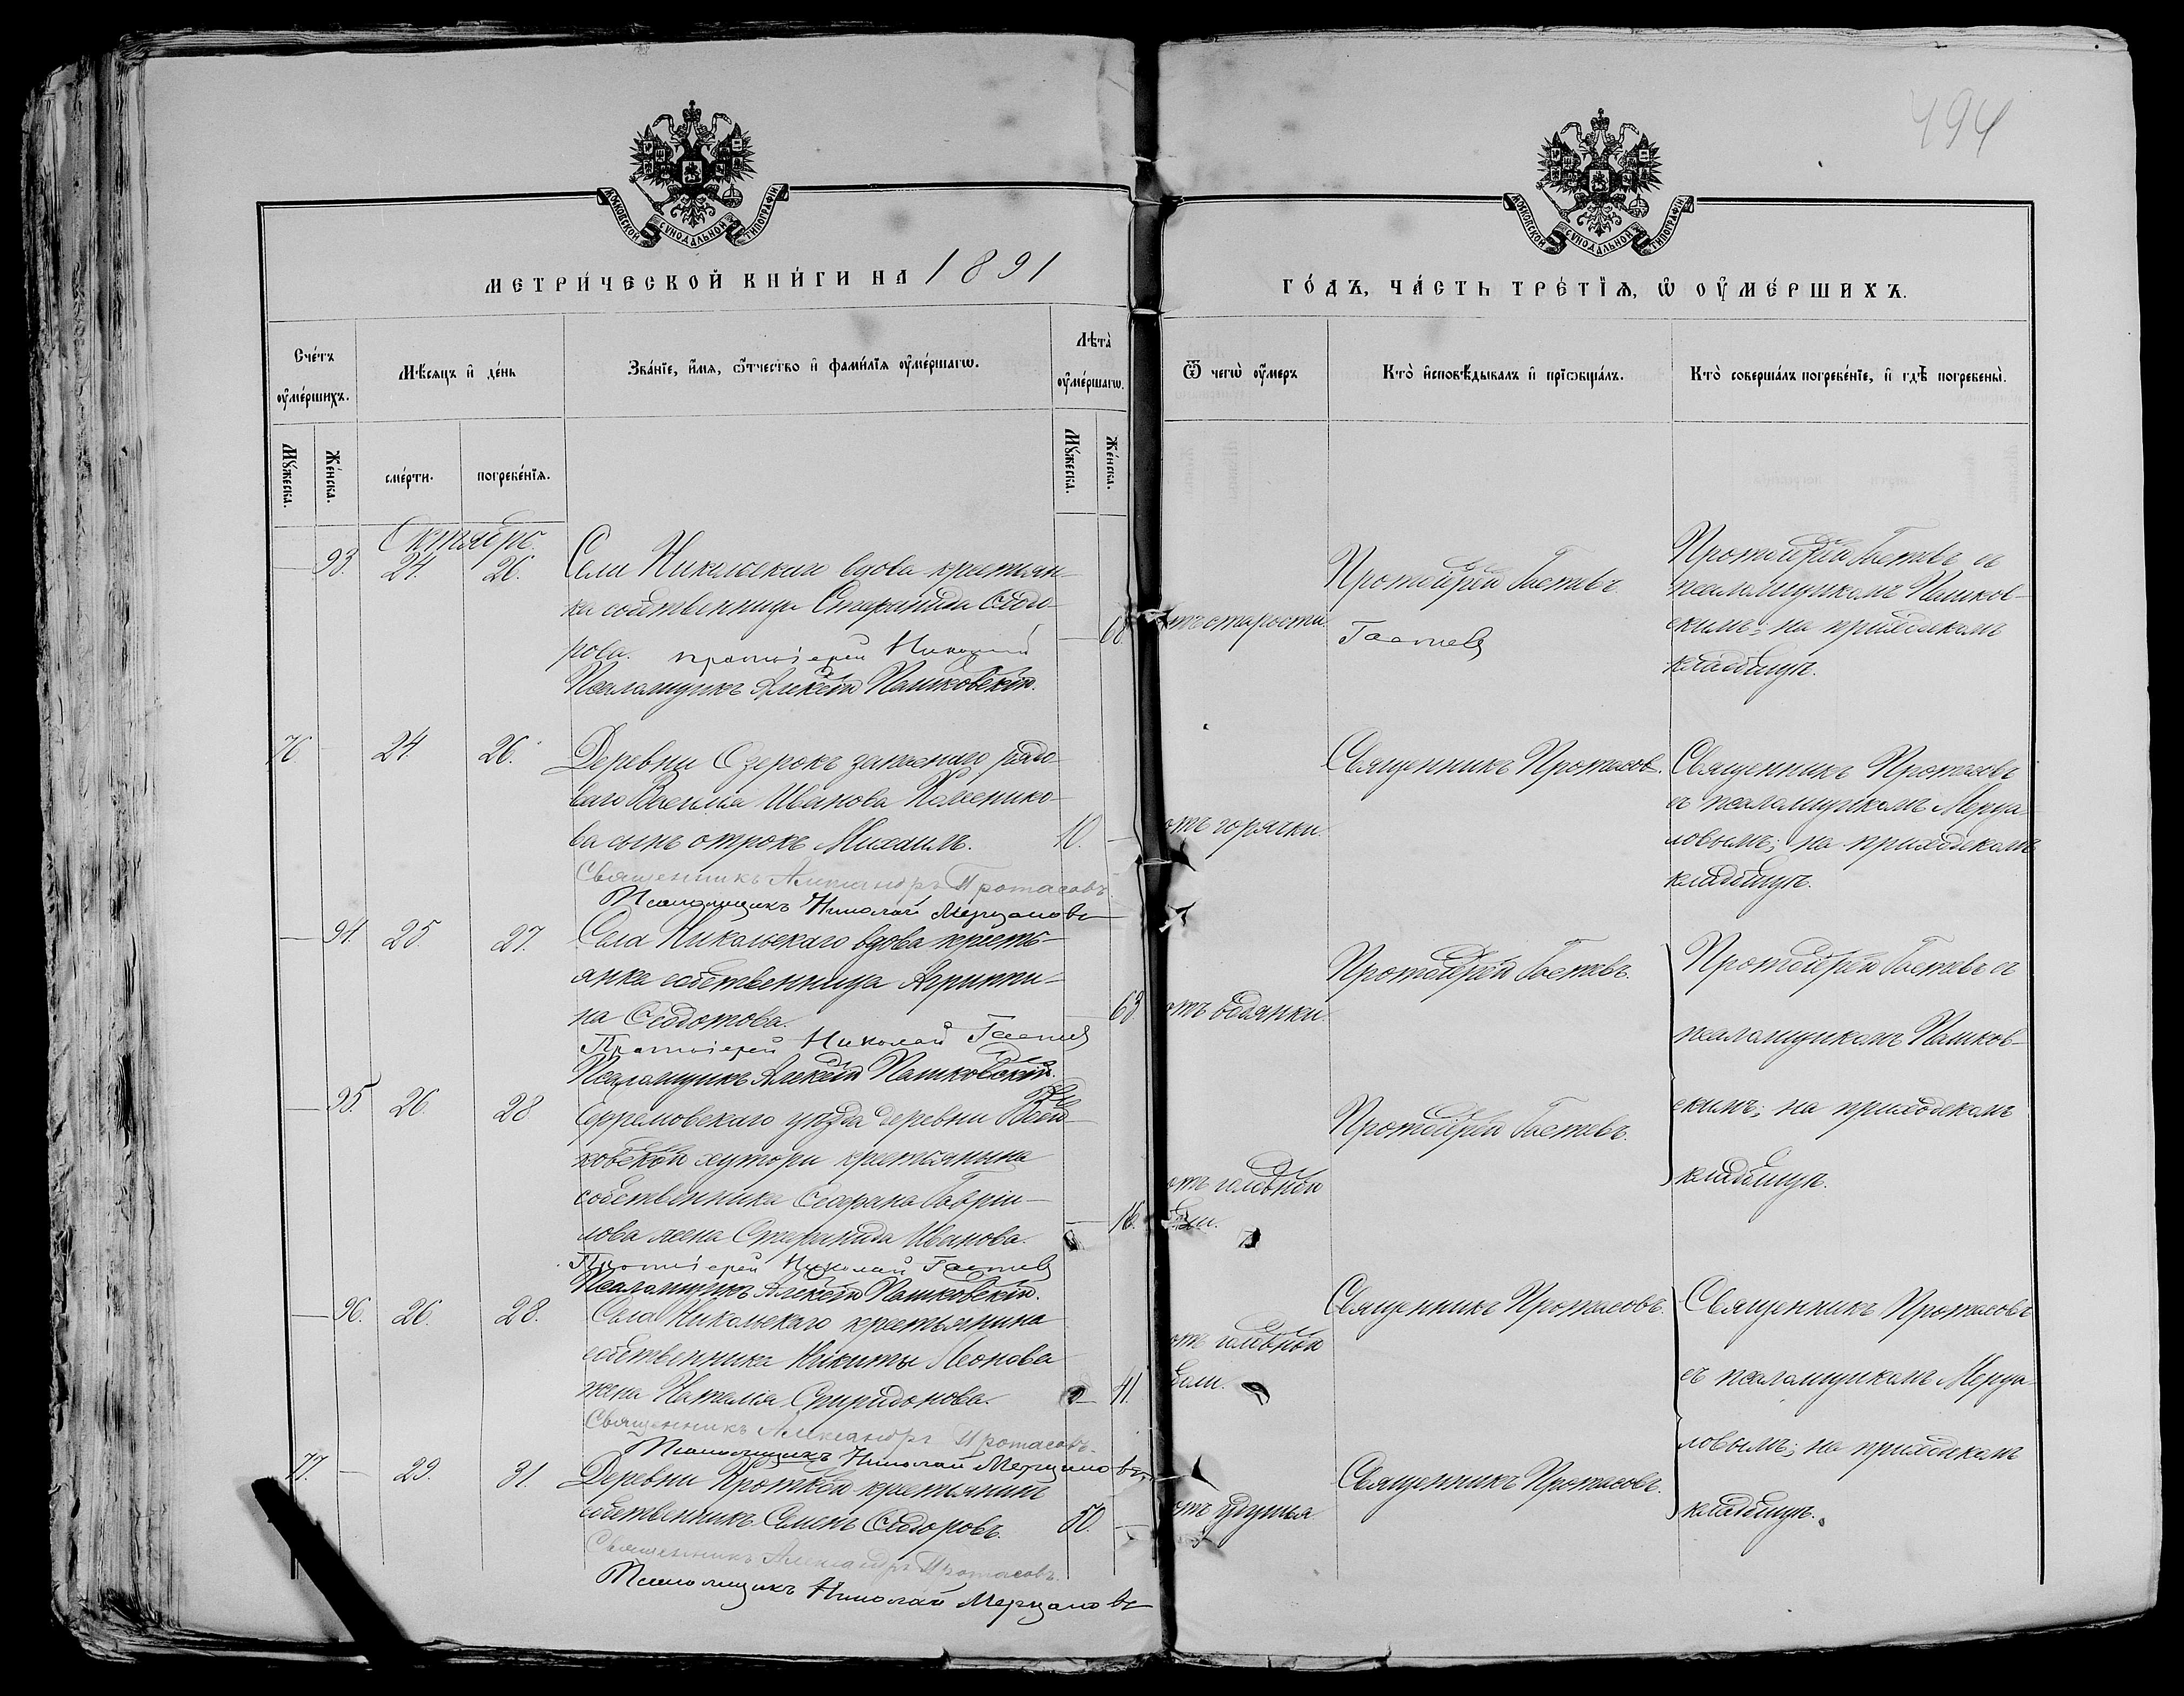 494
МОСКОВСКОЙ СѴНОДАЛЬНОЙ ТИПОГРАФІИ
МОСКОВСКОЙ СѴНОДАЛЬНОЙ ТИПОГРАФІИ
МЕТРИ́ЧЕСКОЙ КНИ́ГИ НА 1891
ГО́ДЪ, ЧА́СТЬ ТРЕ́ТІѦ, Ѡ҆ ОУ҆МЕ́РШИХЪ.
Сче́тъ оу҆ме́ршихъ.
Мѣ́сяцъ и҆ де́нь
Зва́нїе, и҆́мѧ, ѻ҆́тчество и҆ фамилїѧ оу҆ме́ршагѡ.
Лѣ́та оу҆ме́ршагѡ.
Ѿ чегѡ̀ оу҆́меръ
Кто̀ и҆сповѣ́дывалъ и҆ прїѡбща́лъ.
Кто̀ соверша́лъ погребе́нїе, и҆ гдѣ̀ погребены̀.
Мꙋ́жеска.
Же́нска.
сме́рти.
погребе́нїѧ.
Мꙋ́жеска.
Же́нска.
Октябрь.
— 93. 24. 26.
Села Никольскаго вдова крестьян-
ка собственница Стефанида Сидо-
рова. Протоіерей Николай
Гастевъ
Псаломщикъ Алексѣй Пашковскій.
— 68
отъ старости.
Протоіерей Гастевъ.
Протоіерей Гастевъ съ
псаломщикомъ Пашков-
скимъ; на приходскомъ
кладбищѣ.
76. — 24. 26.
Деревни Озерокъ запаснаго рядо-
ваго Василія Иванова
ва сынъ отрокъ Михаилъ.
Священникъ Александръ Протасовъ
Псаломщикъ Николай Мерцаловъ
10. —
отъ горячки.
Священникъ Протасовъ.
Священникъ Протасовъ
съ псаломщикомъ Мерца-
ловымъ; на приходскомъ
кладбищѣ.
— 94. 25. 27.
Села Никольскаго вдова кресть-
янка собственница Агриппи-
на Ѳедотова.
Протоіерей Николай Гастевъ
Псаломщикъ Алексѣй Пашковскій.
63
отъ водянки.
Протоіерей Гастевъ.
Протоіерей Гастевъ съ
псаломщикомъ Пашков-
скимъ; на приходскомъ
кладбищѣ.
— 95. 26. 28
Ефремовскаго уѣзда деревни
хутора крестьянина
собственника Гаврі-
лова жена Стефанида Иванова.
Протоіерей Николай Гастевъ
Псаломщикъ Алексѣй Пашковскій.
— 76.
отъ головной
боли.
Протоіерей Гастевъ.
— 96. 26. 28.
Села Никольскаго крестьянина
собственника Никиты Леонова
жена Наталія Спиридонова.
Священникъ Александръ Протасовъ.
Псаломщикъ Николай Мерцаловъ
— 41.
отъ головной
боли.
Священникъ Протасовъ.
Священникъ Протасовъ
съ псаломщикомъ Мерца-
ловымъ; на приходскомъ
кладбищѣ.
77. — 29. 31.
Деревни Кроткой крестьянинъ
собственникъ Семенъ Сидоровъ.
Священникъ Александръ Протасовъ.
Псаломщикъ Николай Мерцаловъ
50. —
отъ удушья
Священникъ Протасовъ.